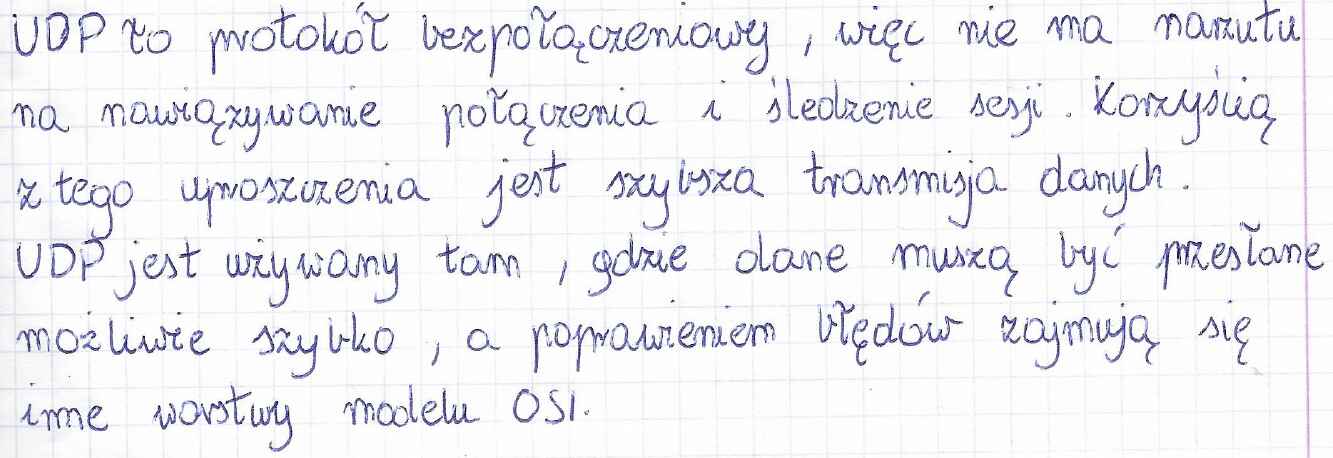 UDP to protokół bezpołączeniowy, więc nie ma narzutu
na nawiązywanie połączenia i śledzenie sesji. Korzyścią
z tego uproszczenia jest szybsza transmisja danych.
UDP jest używany tam, gdzie dane muszą być przesłane
możliwie szybko, a poprawieniem błędów zajmują się
inne warstwy modelu OSI.